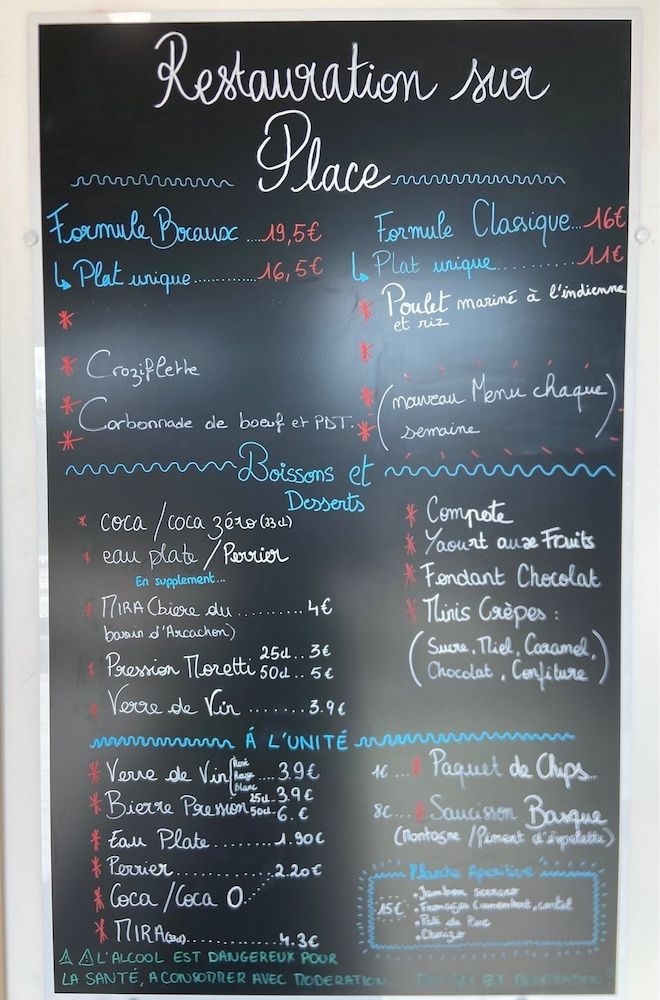 Restauration sur
Place
Formule Bocaux ....19,5€
↳ Plat unique............16,5€
Formule Classique...16€
↳ Plat unique..........11€
*
* Croziflette
* Carbonnade de boeuf et PDT.
*
* Poulet mariné à l'indienne
et riz
*
* (nouveau Menu chaque
* semaine)
Boissons et
Desserts
* coca / coca zéro (33cl)
* eau plate / Perrier
En supplement...
* MIRA (biere du .......... 4€
bassin d'Arcachon)
* Pression Moretti 25cl.. 3€
50cl.. 5€
* Verre de Vin ....... 3.9€
* Compote
* Yaourt aux Fruits
* Fondant Chocolat
* Minis Crèpes :
(Sucre, Miel, Caramel,
Chocolat, Confiture)
Á L'UNITÉ
* Verre de Vin Rosé Rouge Blanc .... 3.9€
* Bierre Pression 25cl. 3.9€
50cl. 6.€
* Eau Plate........1.90€
* Perrier............2.20€
* Coca / Coca 0....
* MIRA (33cl)............4.3€
1€ ...* Paquet de Chips
8€...* Saucisson Basque
(Montagne / Piment d'espelette)
Planche Aperitive
15€
. Jambon serrano
. Fromages Camembert, cantal
. Paté de Porc
. Chorizo
⚠ ⚠ L'ALCOOL EST DANGEREUX POUR
LA SANTÉ, A CONSOMMER AVEC MODERATION...